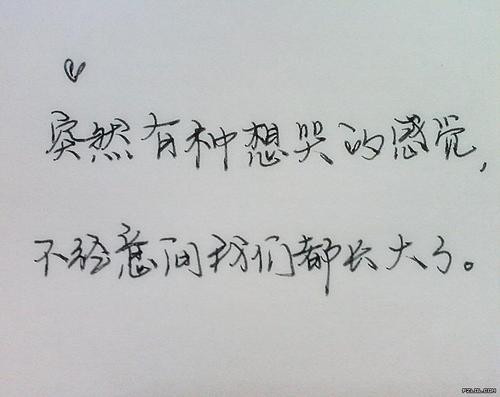 突然有种想哭的感觉,
不经意间我们都长大了。
PZLSL.COM